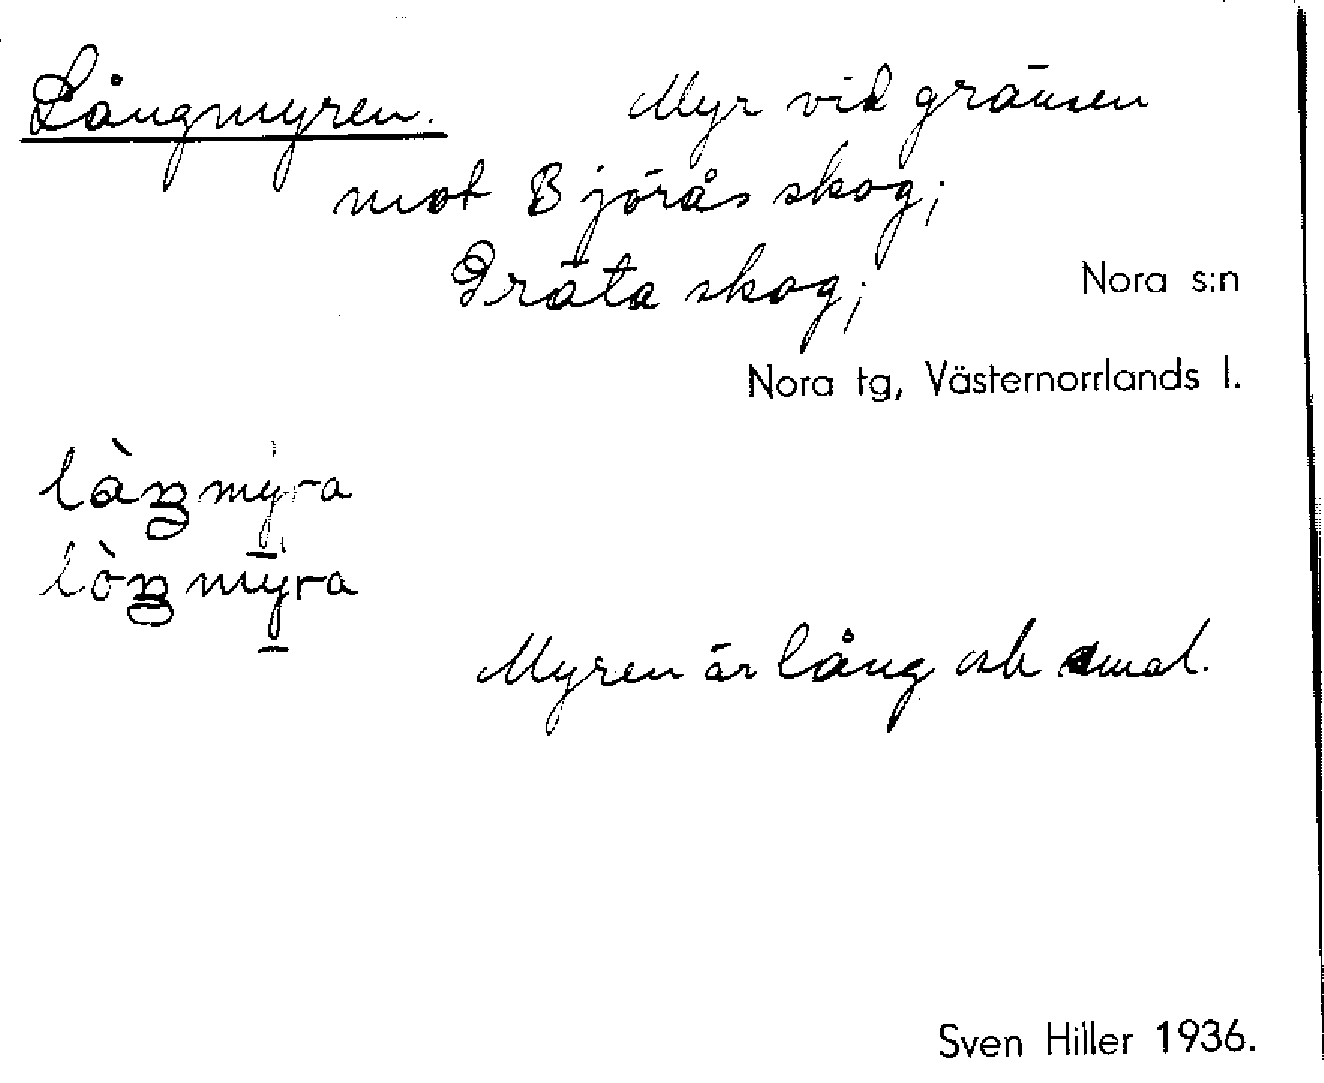 Långmyren. Myr vid gränsen
mot Bjørås skog;
Gräta skog; Nora s:n
Nora tg, Västernorrlands l.
làŋmy̱ra
lòŋmy̱ra
Myren är lång och smal.
Sven Hiller 1936.